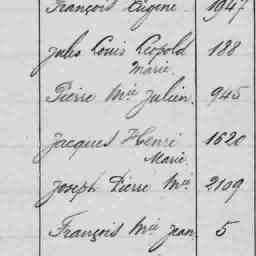 François Eugène 1947
Jules Louis Léopold 188
Marie
Pierre Mie Julien 945
Jacques Henri 1620
Marie
Joseph Pierre Mie 2109
François Mie Jean 5